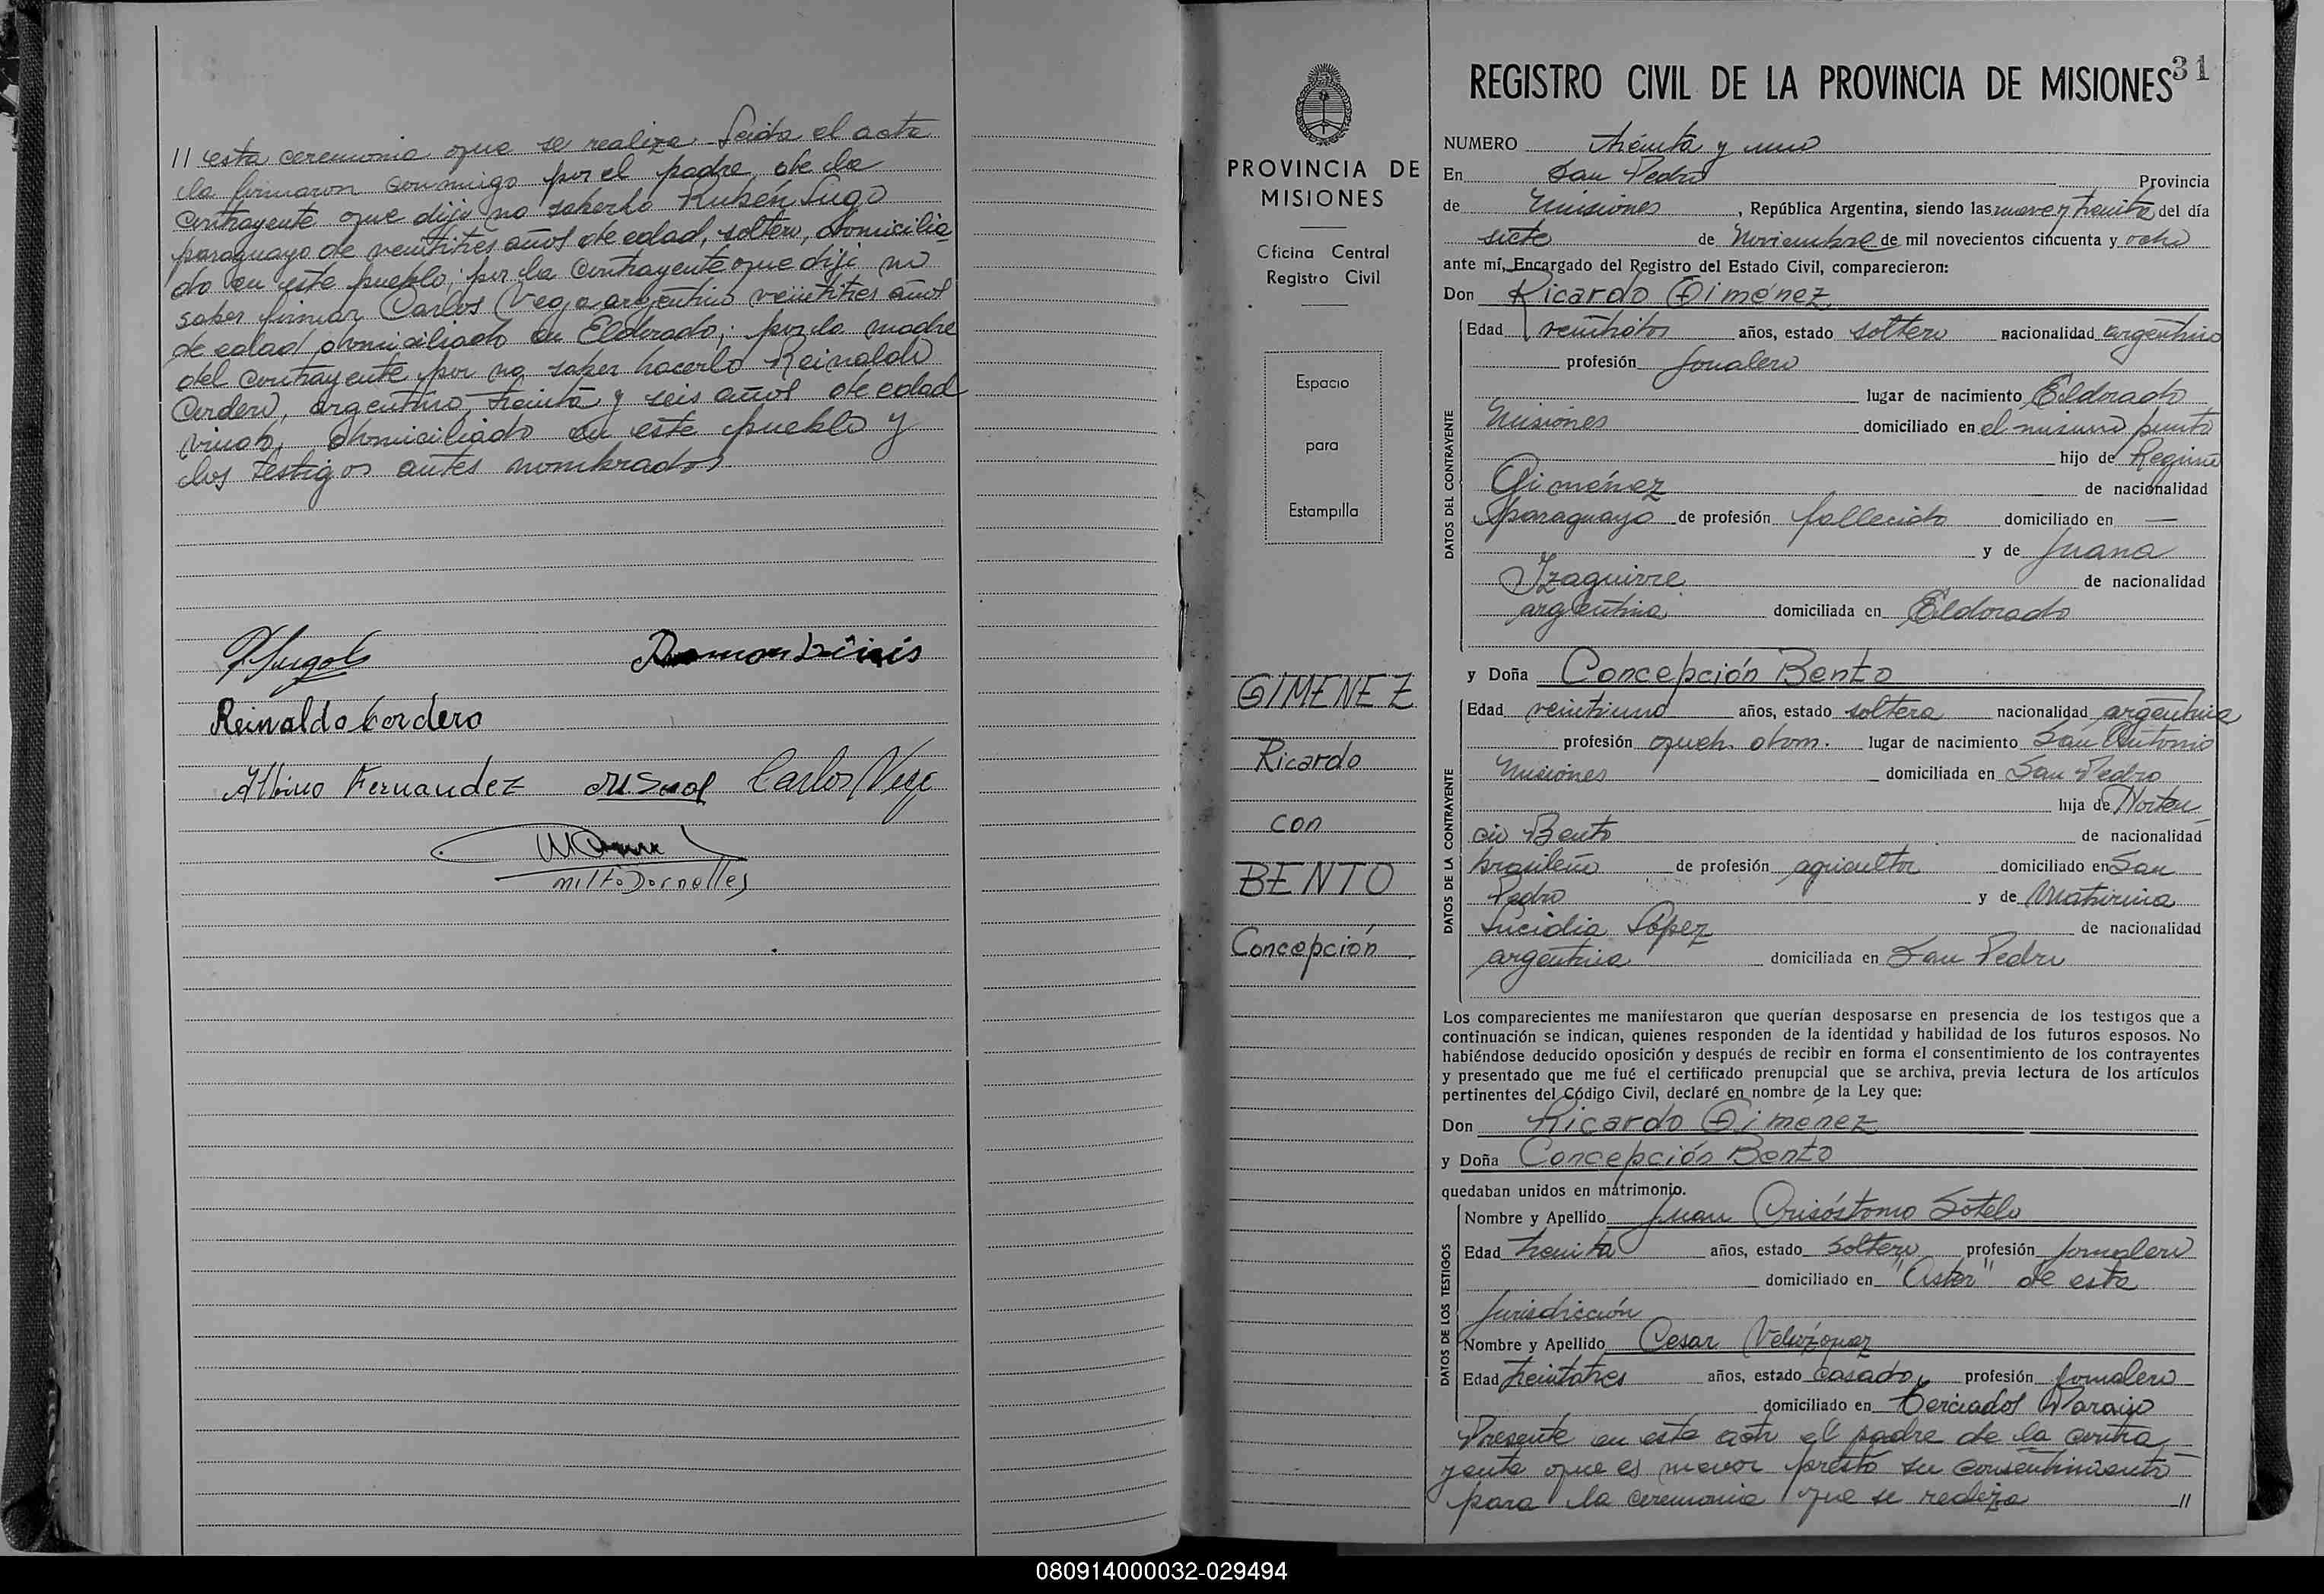 // esta ceremonia que se realiza. Leida el acta
la firmaron conmigo por el padre de la
contrayente que dijo no saberlo Rubén Lugo
paraguayo de veintitres años de edad, soltero, domicilia-
do en este pueblo; por la contrayente que dijo no
saber firmar Carlos Vega argentino veintitres años
de edad domiciliado en Eldorado; por la madre
del contrayente por no saber hacerlo Reinaldo
Cordero, argentino, treinta y seis años de edad
viudo, domiciliado en este pueblo y
los testigos antes nombrados.
Ramon
Reinaldo Cordero
Albino Fernandez Carlos Vega
Milto Dornelles
31
REGISTRO CIVIL DE LA PROVINCIA DE MISIONES
PROVINCIA DE
MISIONES
Oficina Central
Registro Civil
Espacio
para
Estampilla
GIMENEZ
Ricardo
con
BENTO
Concepción
NUMERO treinta y uno
En San Pedro Provincia
de Misiones, República Argentina, siendo las nueve y treinta del día
siete de Noviembre de mil novecientos cincuenta y ocho
ante mí, Encargado del Registro del Estado Civil, comparecieron:
Don Ricardo Giménez
DATOS DEL CONTRAYENTE
Edad veintiocho años, estado soltero nacionalidad argentino
profesión Jornalero
lugar de nacimiento Eldorado
Misiones domiciliado en el mismo punto
hijo de
Giménez de nacionalidad
paraguayo de profesión fallecido domiciliado en —
y de Juana
Izaguirre de nacionalidad
argentina domiciliada en Eldorado
y Doña Concepción Bento
DATOS DE LA CONTRAYENTE
Edad veintiuno años, estado soltera nacionalidad argentina
profesión queh. dom. lugar de nacimiento San Antonio
Misiones domiciliada en San Pedro
hija de Horten-
cio Bento de nacionalidad
brasileño de profesión agricultor domiciliado en San
Pedro y de
Lucidia López de nacionalidad
argentina domiciliada en San Pedro
Los comparecientes me manifestaron que querían desposarse en presencia de los testigos que a
continuación se indican, quienes responden de la identidad y habilidad de los futuros esposos. No
habiéndose deducido oposición y después de recibir en forma el consentimiento de los contrayentes
y presentado que me fué el certificado prenupcial que se archiva, previa lectura de los artículos
pertinentes del Código Civil, declaré en nombre de la Ley que:
Don Ricardo Giménez
y Doña Concepción Bento
quedaban unidos en matrimonio.
DATOS DE LOS TESTIGOS
Nombre y Apellido Juan Crisóstomo Sotelo
Edad treinta años, estado soltero profesión jornalero
domiciliado en "Aster" de esta
Jurisdicción
Nombre y Apellido Cesar Velázquez
Edad treintatres años, estado casado, profesión jornalero
domiciliado en Terciados Paraiso
Presente en este acto el padre de la contra
yente que es menor prestó su consentimiento
para la ceremonia que se realiza //
080914000032-029494